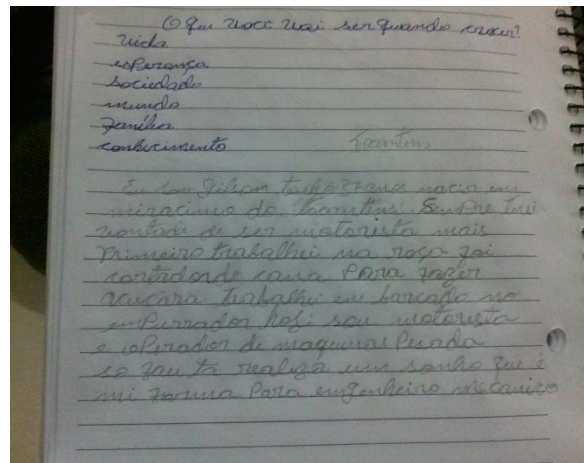 O que você vai ser quando crescer?
vida
esperança
sociedade
mundo
família
conhecimento
Tocantins
Eu sou Gilson tenho 37 anos nacir em
miracimo do Tocantins. Sempre tive
vontade de ser motorista mais
Primeiro trabalhei na roça foi
cortador de cana Para fazer
açucara trabalhei em barcado no
empurrador hoj. sou motorista
e oPerador de maquinas Pesada
so fauta realiza um sonho que é
mi forma Para engenheiro mecanico